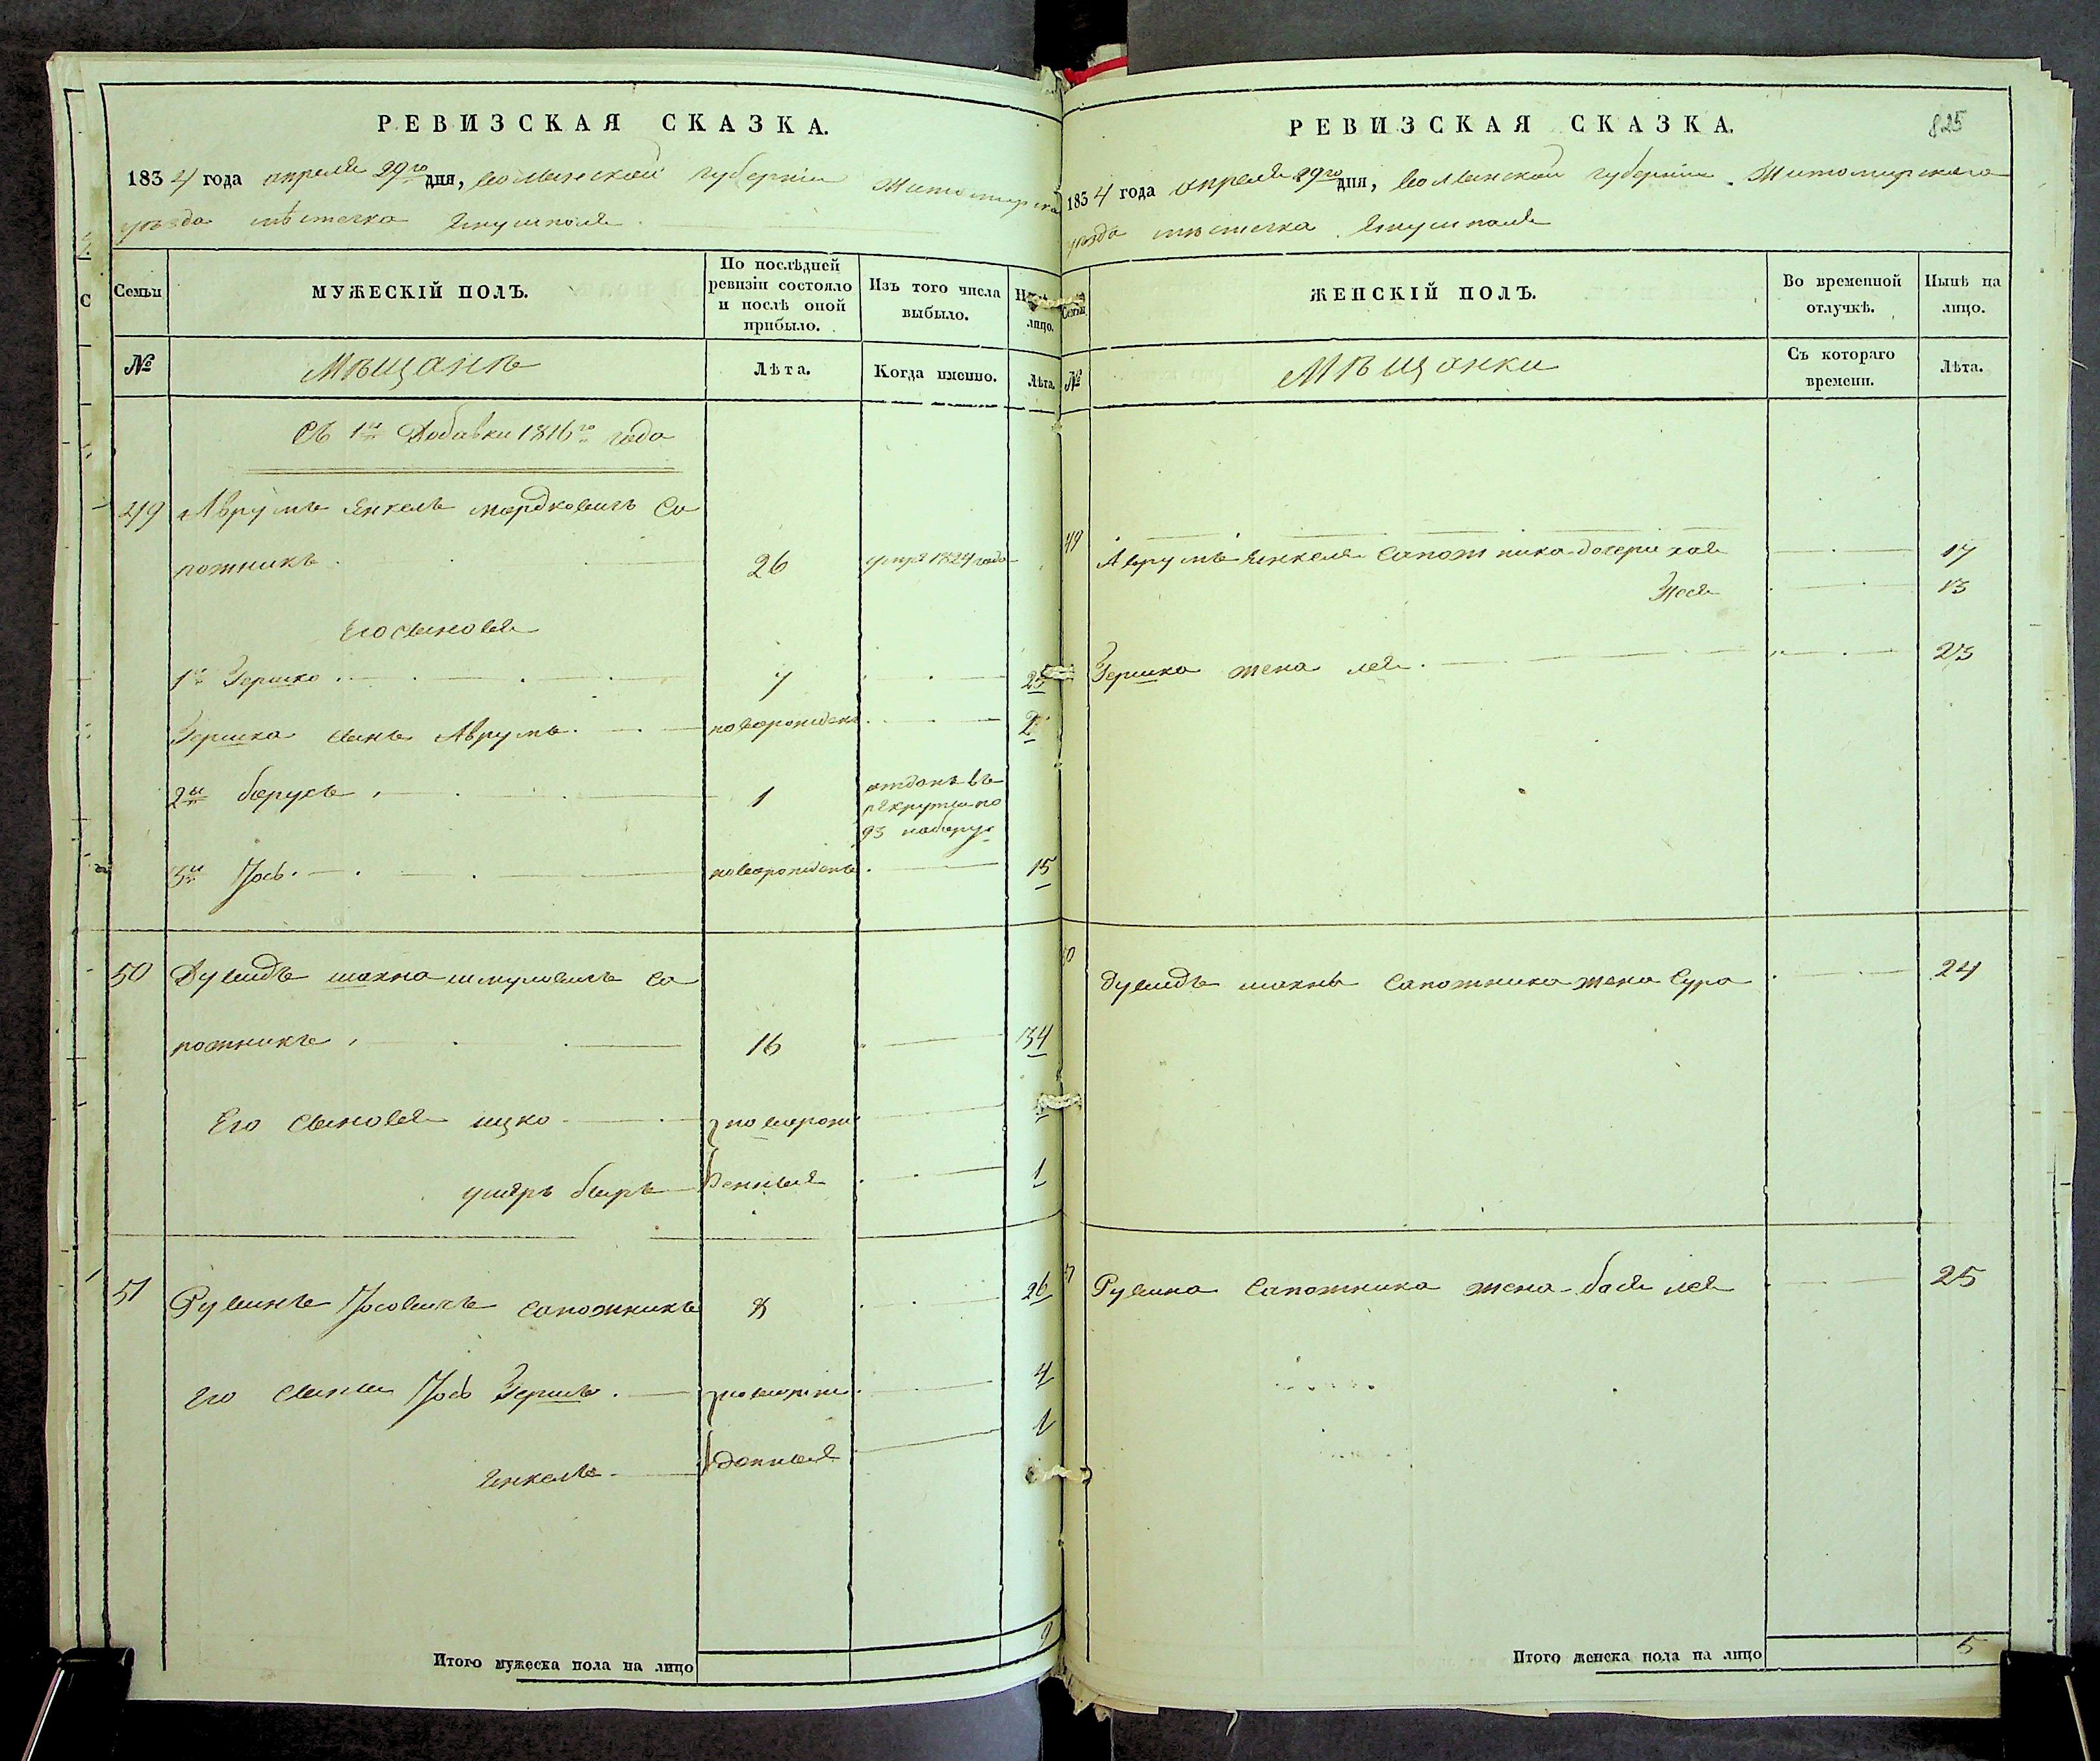 РЕВИЗСКАЯ СКАЗКА.
1834 года апреля 29го дня, волынской губернии Житомирска
уѣзда мѣстечка Янушполя
Семьи
МУЖЕСКІЙ ПОЛЪ.
По послѣдней ревизіи состояло и послѣ оной прибыло.
Изъ того числа выбыло.
лицо.
№
Мѣщанѣ
Лѣта.
Когда именно.
Лѣта.
Съ 1й Добавки 1816го года
49 Аврумъ Янкель мордковичъ Са
пожникъ 26 умре 1824 года
Его сыновья
1й Гершко 7 25
Гершка сынъ Аврумъ новорожденъ 2
2й берухъ 1 отданъ въ
рекруты по
93 набору
3й Іось новорожденъ 15
50 Дувидъ шахна шмуловичъ са
пожникъ 16 34
Его сыновья ицко новорож
беръ денныя 1
51 Рувинъ Іосовичъ сапожникъ 8 26
Его сыны Іось Гершъ новорож 4
Янкель данныя 1
Итого мужеска пола на лицо 9
РЕВИЗСКАЯ СКАЗКА.
825
1834 года апреля 29го дня, волынской губернии Житомирскаго
уѣзда мѣстечка Янушполя
Семьи
ЖЕНСКІЙ ПОЛЪ.
Во временной отлучкѣ.
Нынѣ на лицо.
№
Мѣщанки
Съ котораго времени.
Лѣта.
49 Аврумъ Янкеля сапожника дочери хая 17
13
Гершка жена лея 23
50 дувидъ шахны сапожника жена Сура 24
51 Рувина сапожника жена бася лея 25
Итого женска пола на лицо 5